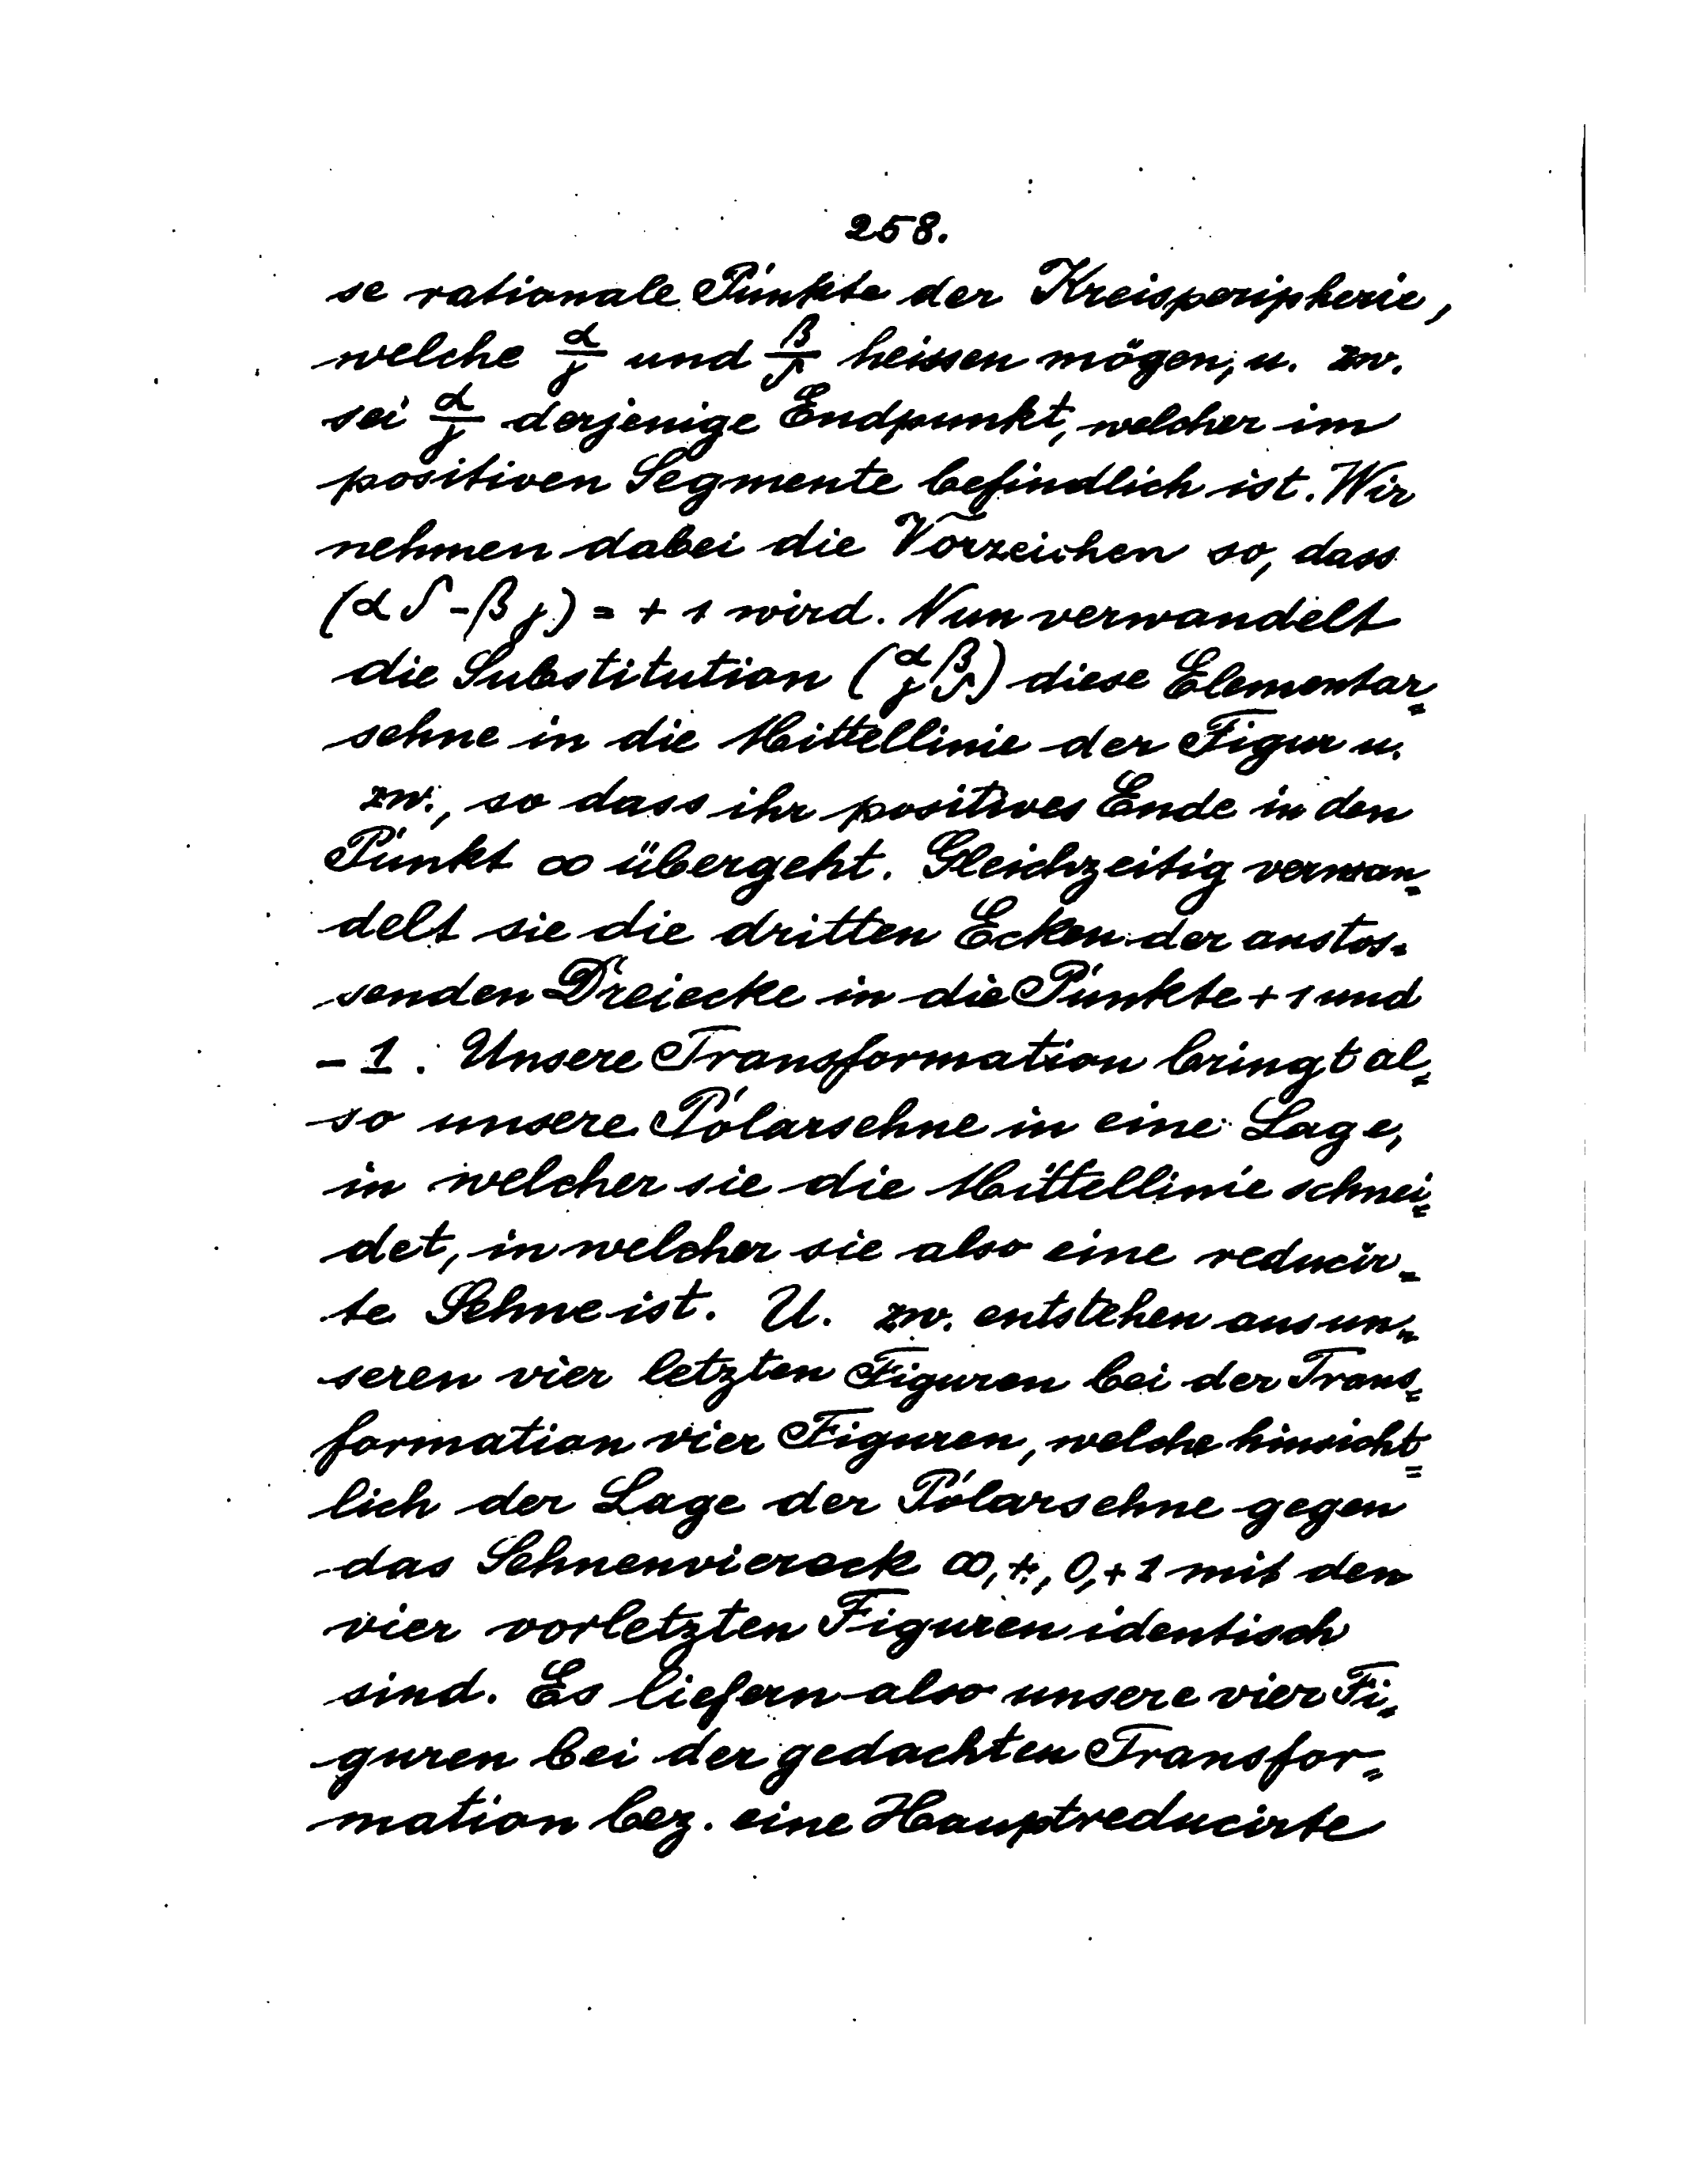 258.
se rationale Punkte der Kreisperipherie,
welche α/γ und β/δ heissen mögen, u. zw.
sei α/γ derjenige Endpunkt, welcher im
positiven Segmente befindlich ist. Wir
nehmen dabei die Vorzeichen so, dass
(αδ-βγ) = + 1 wird. Nun verwandelt
die Substitution (α β γ δ) diese Elementar=
sehne in die Mittellinie der Figur u.
zw., so dass ihr positives Ende in den
Punkt ∞ übergeht. Gleichzeitig verwan=
delt sie die dritten Ecken der anstos=
senden Dreiecke in die Punkte + 1 und
- 1. Unsere Transformation bringt al=
so unsere Polarsehne in eine Lage,
in welcher sie die Mittellinie schnei=
det, in welcher sie also eine reducir=
te Sehne ist. U. zw. entstehen aus un=
seren vier letzten Figuren bei der Trans=
formation vier Figuren, welche hinsicht=
lich der Lage der Polarsehne gegen
das Sehnenviereck ∞, 0, + 1 mit den
vier vorletzten Figuren identisch
sind. Es liefern also unsere vier Fi=
guren bei der gedachten Transfor=
mation bez. eine Hauptreducirte